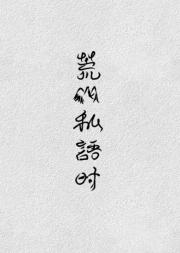 荒山私語时